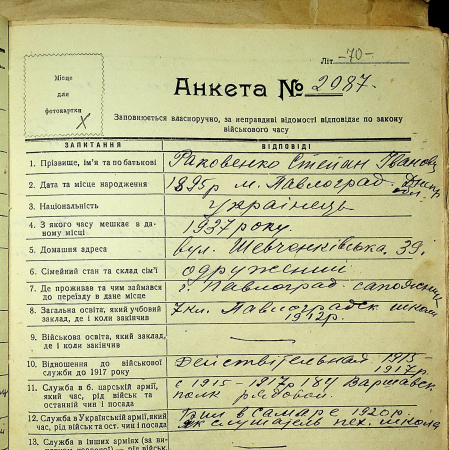 Літ -70-
Місце
для
фотокартки
Анкета № 2987.
Заповнюється власноручно, за неправдиві відомості відповідає по закону
військового часу
ЗАПИТАННЯ ВІДПОВІДІ
1. Прізвище, ім'я та по батькові Раковенко Степан Іванов
2. Дата та місце народження 1895р м. Павлоград. Дніпр
обл.
3. Національність українець
4. З якого часу мешкає в да-
ному місці 1937 року.
5. Домашня адреса вул. Шевченківська. 39.
6. Сімейний стан та склад сім'ї одружений
7. Де проживав та чим займався
до переїзду в дане місце г. Павлоград сапожник
8. Загальна освіта, який учбовий
заклад, де і коли закінчив 7 кл. Павлоградск школи
1912р.
9. Військова освіта, який заклад,
де і коли закінчив
10. Відношення до військової
служби до 1917 року Действітельная 1915-
1917р.
11. Служба в б. царській армії,
який час, рід військ та
останній чин і посада с 1915-1917р 184 Варшавск
полк рядовой.
12. Служба в Українській армії, який
час, рід військ та ост. чин і посада Бил в Самаре 1920р.
як слушатель пех. школа
13. Служба в інших арміях (за ви-